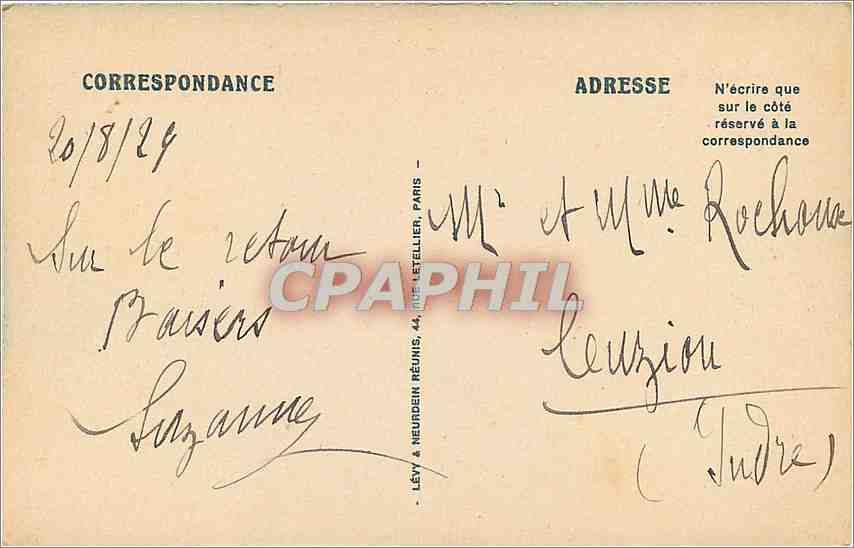 CORRESPONDANCE
20/8/29
Sur le retour
Baisers
Suzanne
- LÉVY & NEURDEIN RÉUNIS, 44, RUE LETELLIER, PARIS -
ADRESSE
N'écrire que
sur le côté
réservé à la
correspondance
Mr et Mme Rochoux
Ceuzion
(Indre)
CPAPHIL